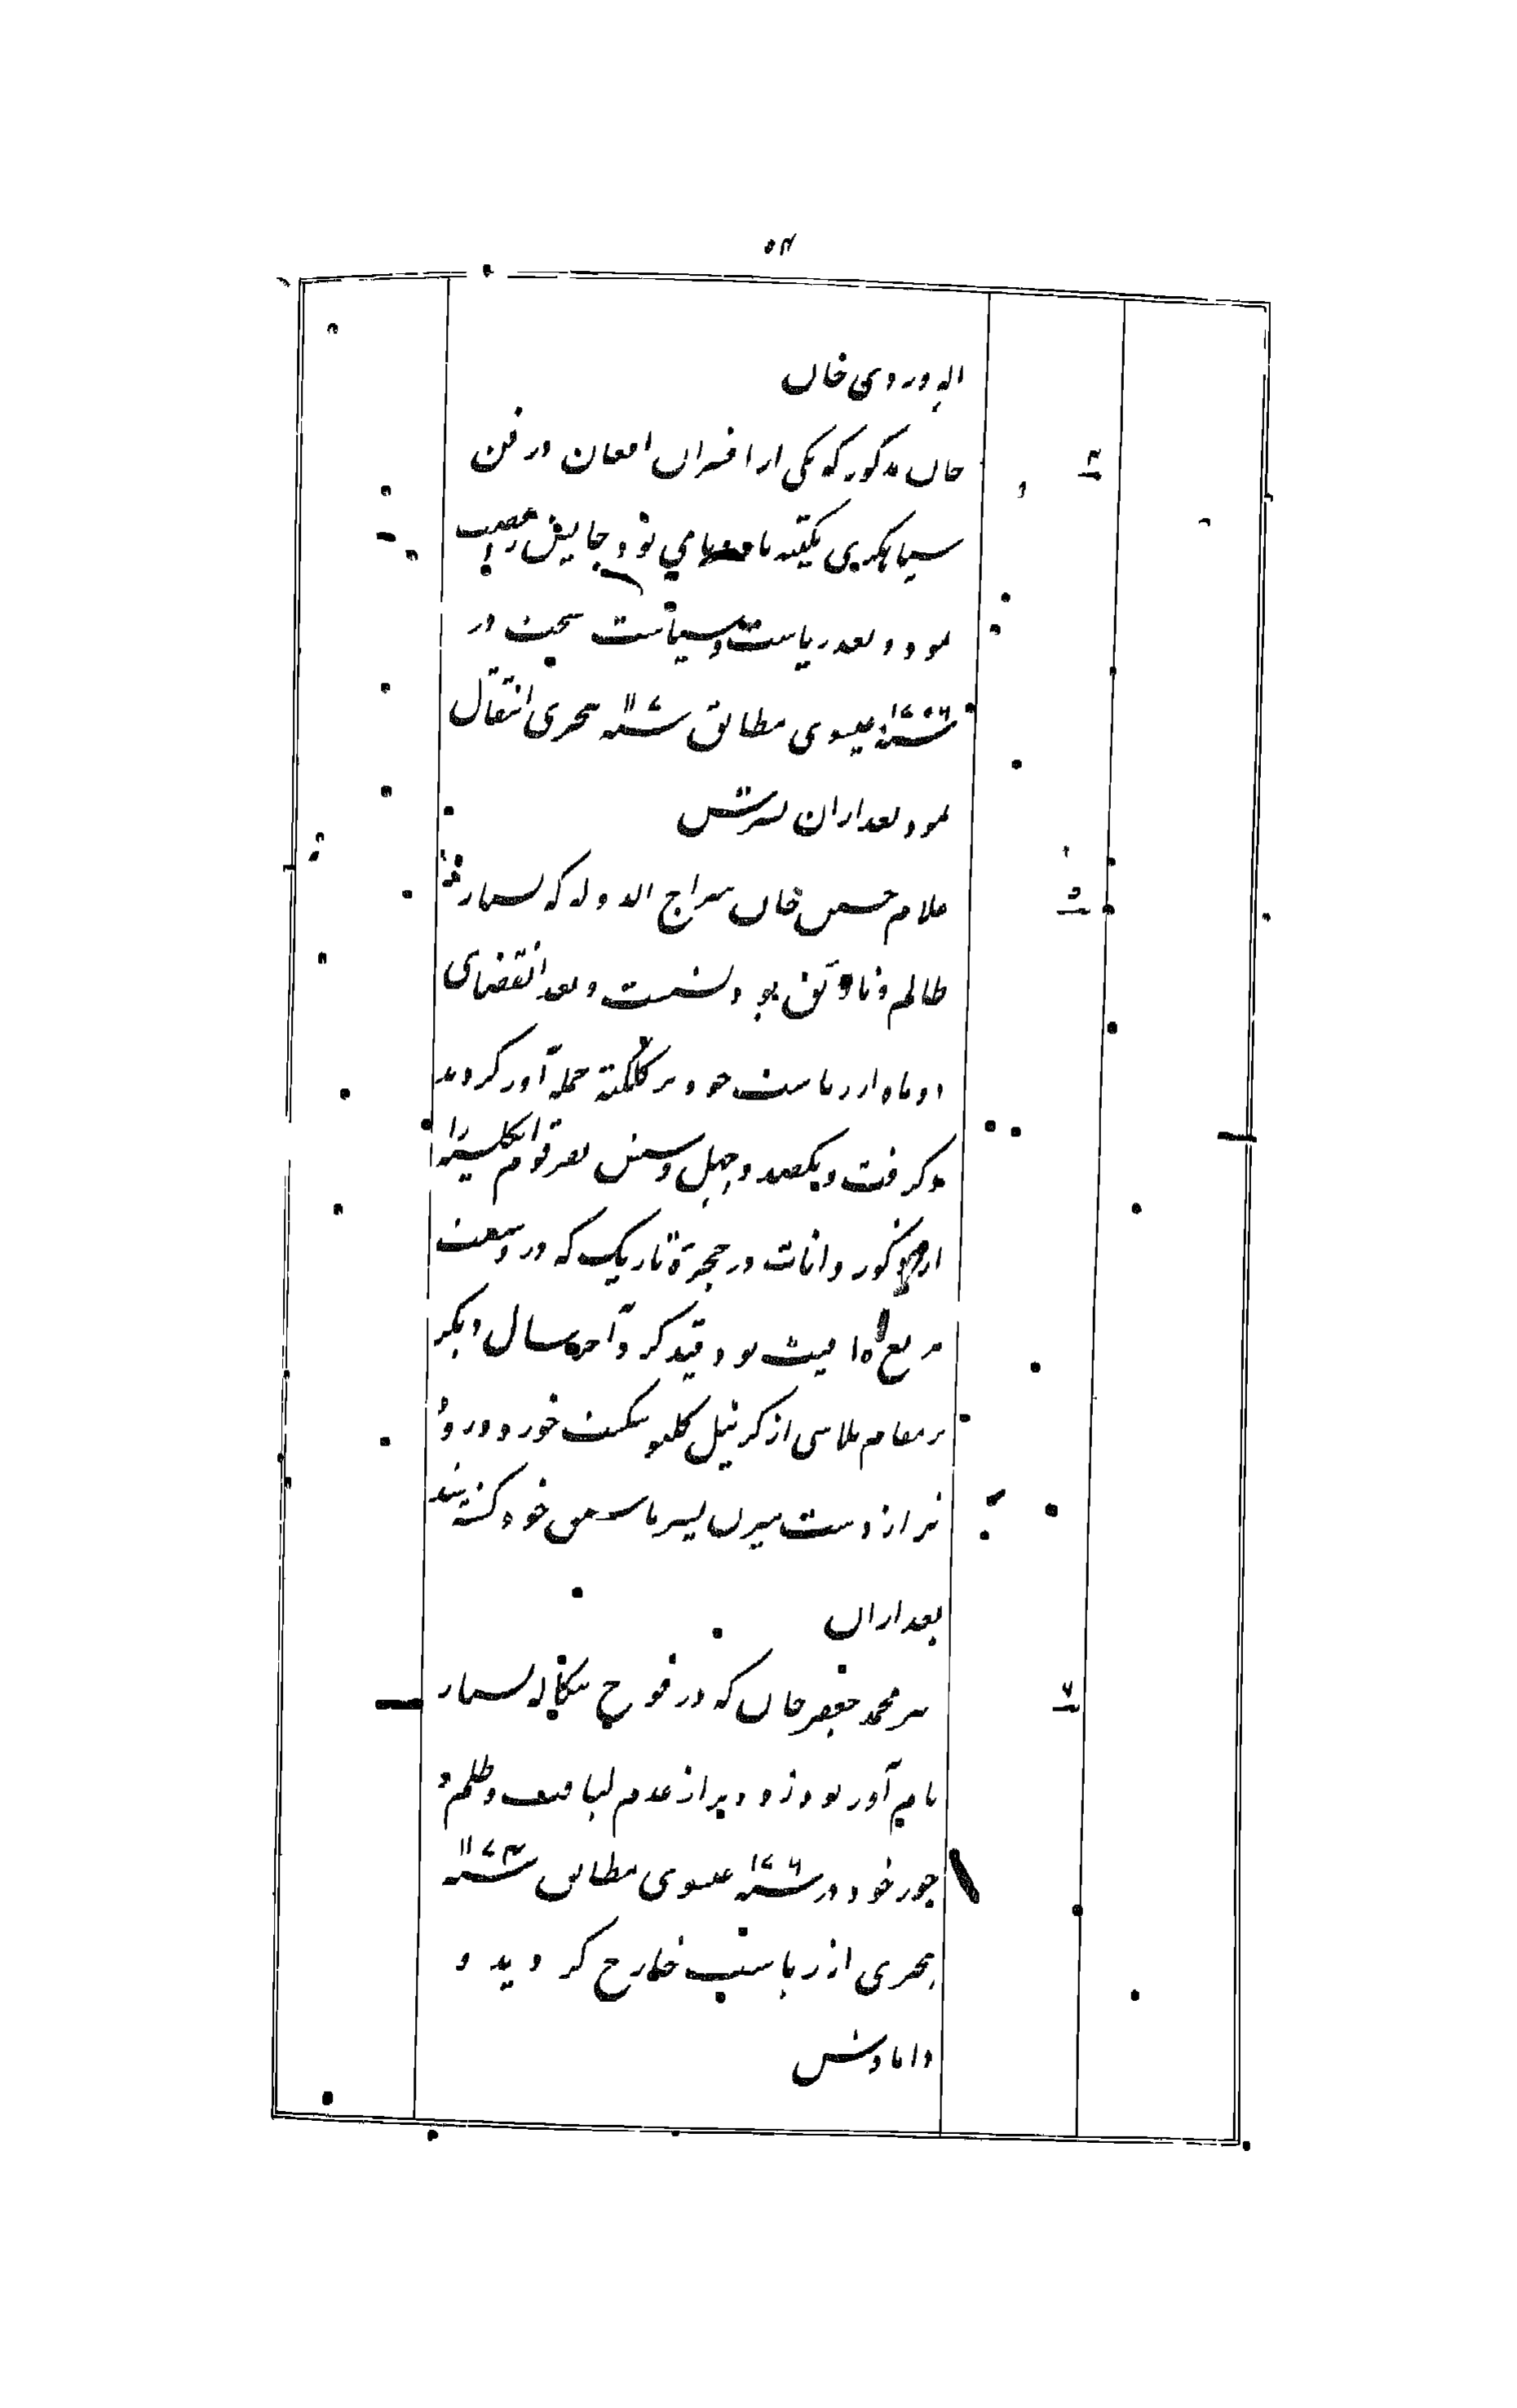 ۵۴
اله وردی خان
۴
خان مذکور که یکی از افسران افغان در فن
سپاهگری یکتا نامی بود جایش غصب
نمود و بعد ریاست و سیاست سخت در
۱۷۵۶ سنه عیسوی مطابق سنه هجری انتقال
نمود بعد ازان پسرش
۵
غلام حسین خان سراج الدوله که بسیار
ظالم و نالایق بود نشست و بعد انقضای
دو ماه از ریاست خود بر کلکته حمله آور گردید
و گرفت و یکصد و چهل و شش نفر قوم انگلیز را
از ذکور و اناث در حجرة تاریک که در وسعت
مربع فیت بود قید کرد آخر سال دیگر
بر مقام پلاسی از کرنیل کلیو شکست خورد و در
نیز از دست میرن پسر جانشین خود کشته شد
بعد ازان
۶
میر محمد جعفر خان که در فوج بنگاله بسیار
نام آور بود زود تر از عدم لیاقت و ظلم و
جور خود در سنه ۱۷۶ عیسوی مطابق سنه ۱۱۷۴
هجری از ریاست خارج گردید و
دامادش